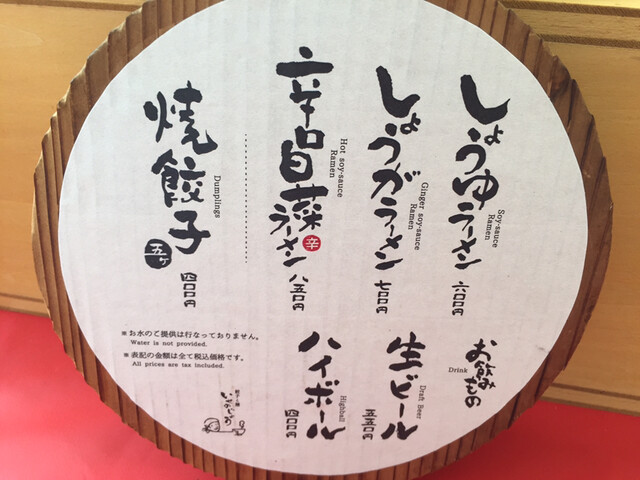 しょうゆラーメン
Soy-sauce
Ramen
六〇〇円
しょうがラーメン
Ginger soy-sauce
Ramen
七〇〇円
辛口白菜ラーメン
辛
Hot soy-sauce
Ramen
八五〇円
焼餃子
五ヶ
Dumplings
四〇〇円
お飲みもの
Drink
生ビール
Draft Beer
五五〇円
ハイボール
Highball
四〇〇円
※お水のご提供は行なっておりません。
Water is not provided.
※表記の金額は全て税込価格です。
All prices are tax included.